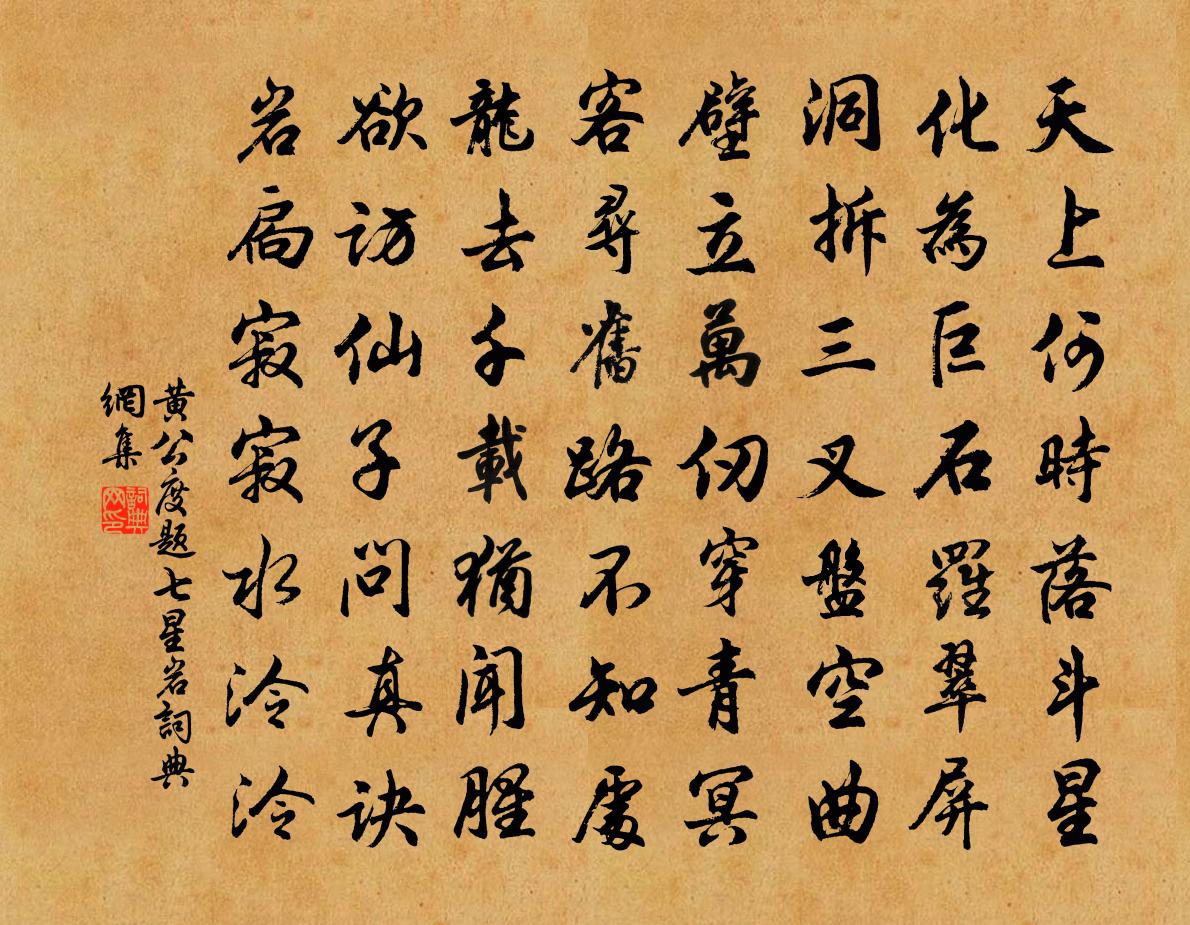 天上何時落斗星
化為巨石羅翠屏
洞拆三叉盤空曲
壁立萬仞穿青冥
客尋舊路不知處
龍去千載猶聞腥
欲訪仙子問真訣
岩扃寂寂水泠泠
黃公度題七星岩詞典
網集
詞典網印